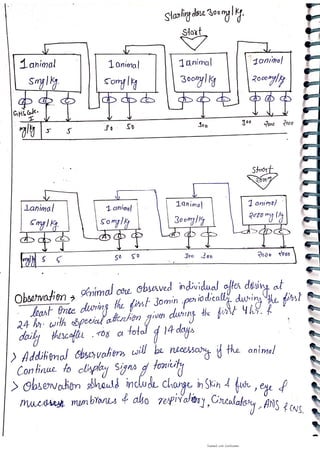 Starting dose 300mg/kg.
Start
1 animal 1 animal 1 animal 1 animal
5mg/kg 50mg/kg 300mg/kg 2000mg/kg
mg/kg 5 5 50 50 300 300 2000 2000
Start
1 animal 1 animal 1 animal 1 animal
5mg/kg 50mg/kg 300mg/kg 2000mg/kg
mg/kg 5 5 50 50 300 300 2000 2000
Observation → Animal are observed individual after dosing at
least once during the first 30min periodically during the first
24 hr. with especial attention given during the first 4 hrs. &
daily thereafter. for a total of 14 days
> Additional observations will be necessary if the animal
Continue to display signs of toxicity
> Observation should include Change in Skin & fur, eye &
mucous membranes & also respiratory, Circulatory, ANS & CNS.